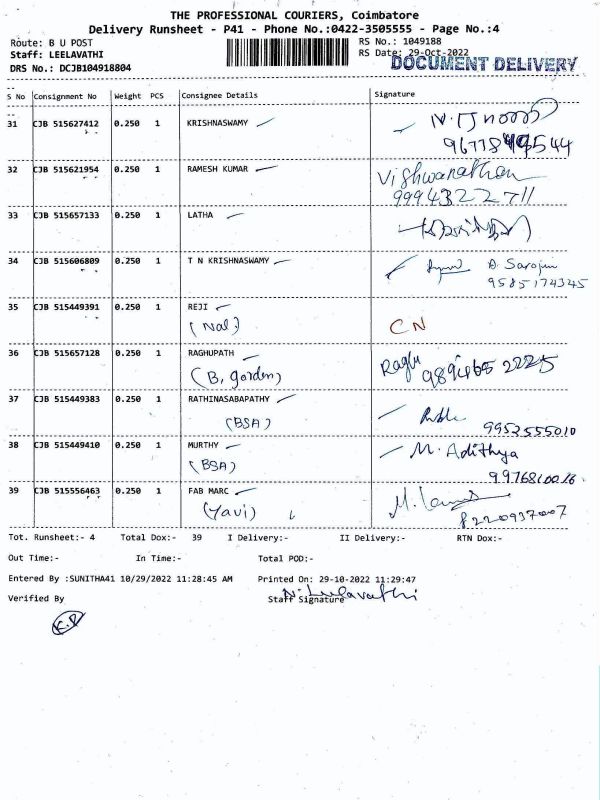 THE PROFESSIONAL COURIERS, Coimbatore
Delivery Runsheet - P41 - Phone No.:0422-3505555 - Page No.:4
Route: B U POST
RS No.: 1049188
Staff: LEELAVATHI
RS Date: 29-Oct-2022
DOCUMENT DELIVERY
DRS No.: DCJB104918804
S No Consignment No Weight PCS Consignee Details Signature
31 CJB 515627412 0.250 1 KRISHNASWAMY
32 CJB 515621954 0.250 1 RAMESH KUMAR Vishwanathan
9994322711
33 CJB 515657133 0.250 1 LATHA
34 CJB 515606809 0.250 1 T N KRISHNASWAMY D. Sarojini
9585174345
35 CJB 515449391 0.250 1 REJI
(Nal) CN
36 CJB 515657128 0.250 1 RAGHUPATH Raghu
(B, garden)
37 CJB 515449383 0.250 1 RATHINASABAPATHY
(BSA) 9952555010
38 CJB 515449410 0.250 1 MURTHY M. Adithya
(BSA) 9976810016
39 CJB 515556463 0.250 1 FAB MARC
(Yavi) 8220937007
Tot. Runsheet:- 4 Total Dox:- 39 I Delivery:- II Delivery:- RTN Dox:-
Out Time:- In Time:- Total POD:-
Entered By :SUNITHA41 10/29/2022 11:28:45 AM Printed On: 29-10-2022 11:29:47
Verified By Staff Signature
N. Leelavathi
K.P